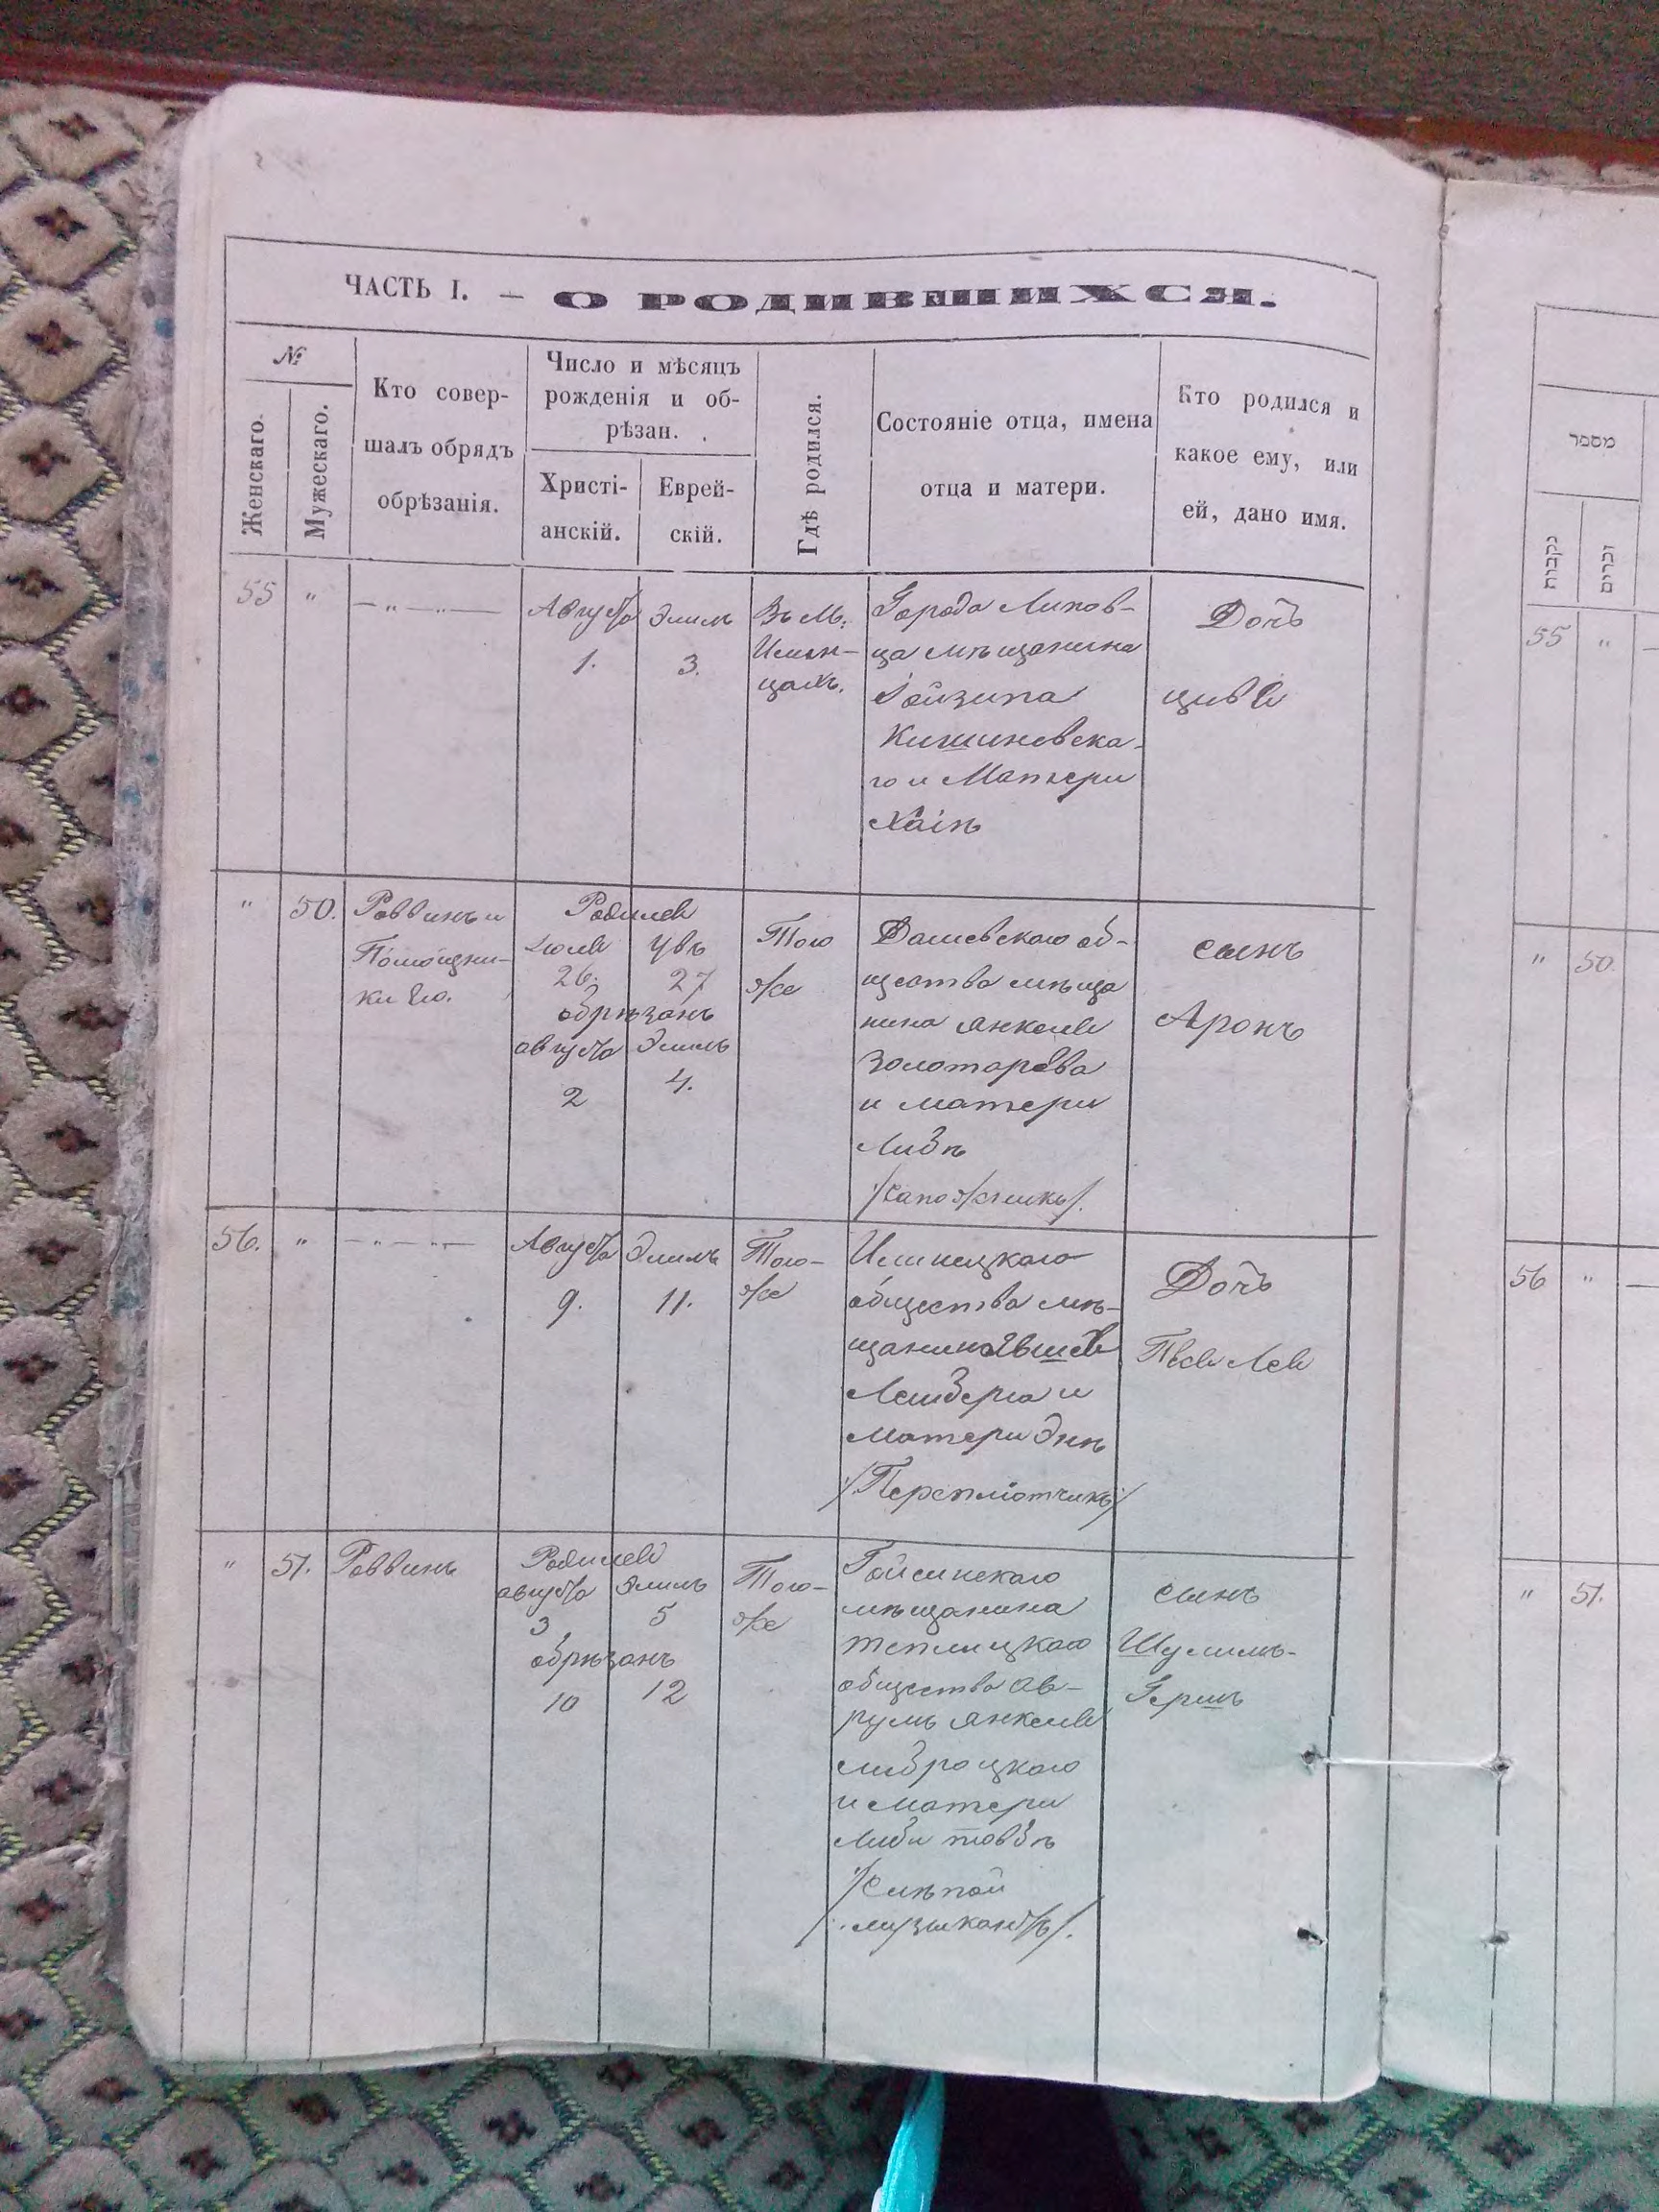 ЧАСТЬ I. — О РОДИВШИХСЯ.
№
Женскаго.
Мужескаго.
Кто совер-
шалъ обрядъ
обрѣзанія.
Число и мѣсяцъ
рожденія и об-
рѣзан.
Христі-
анскій.
Еврей-
скій.
Гдѣ родился.
Состояніе отца, имена
отца и матери.
Кто родился и
какое ему, или
ей, дано имя.
55 " — " — " —
Августа
1.
Элилъ
3.
Въ М.
Илин-
цахъ.
Города Липов-
ца мѣщанина
Кишиневска-
го и Матери
Хаiѣ
Дочь
Цивя
" 50.
Раввинъ и
Помощни-
ки Его.
Родился
Iюля
26.
Увъ
27
обрѣзанъ
августа
2
Элилъ
4.
Того
же
Дашевскаго об-
щества мѣща
нина Янкеля
Золотарева
и матери
Либѣ
/Сапожникъ/.
сынъ
Аронъ
56. " — " — " —
Августа
9.
Элилъ
11.
Того-
же
Илинецкаго
общества мѣ-
щанина
и
Матери Энѣ
/Переплiотчикъ/
Дочь
" 51.
Раввинъ
Родился
августа
3
Элилъ
5
обрѣзанъ
10
12
Того-
же
Гайсинскаго
мѣщанина
теплицкаго
общества Ав-
румъ Янкеля
и матери
/Слѣпой
музыкантъ/.
сынъ
Шулимъ-
Гершъ
מספר
נקבות
זכרים
55 "
" 50
56 "
" 51.